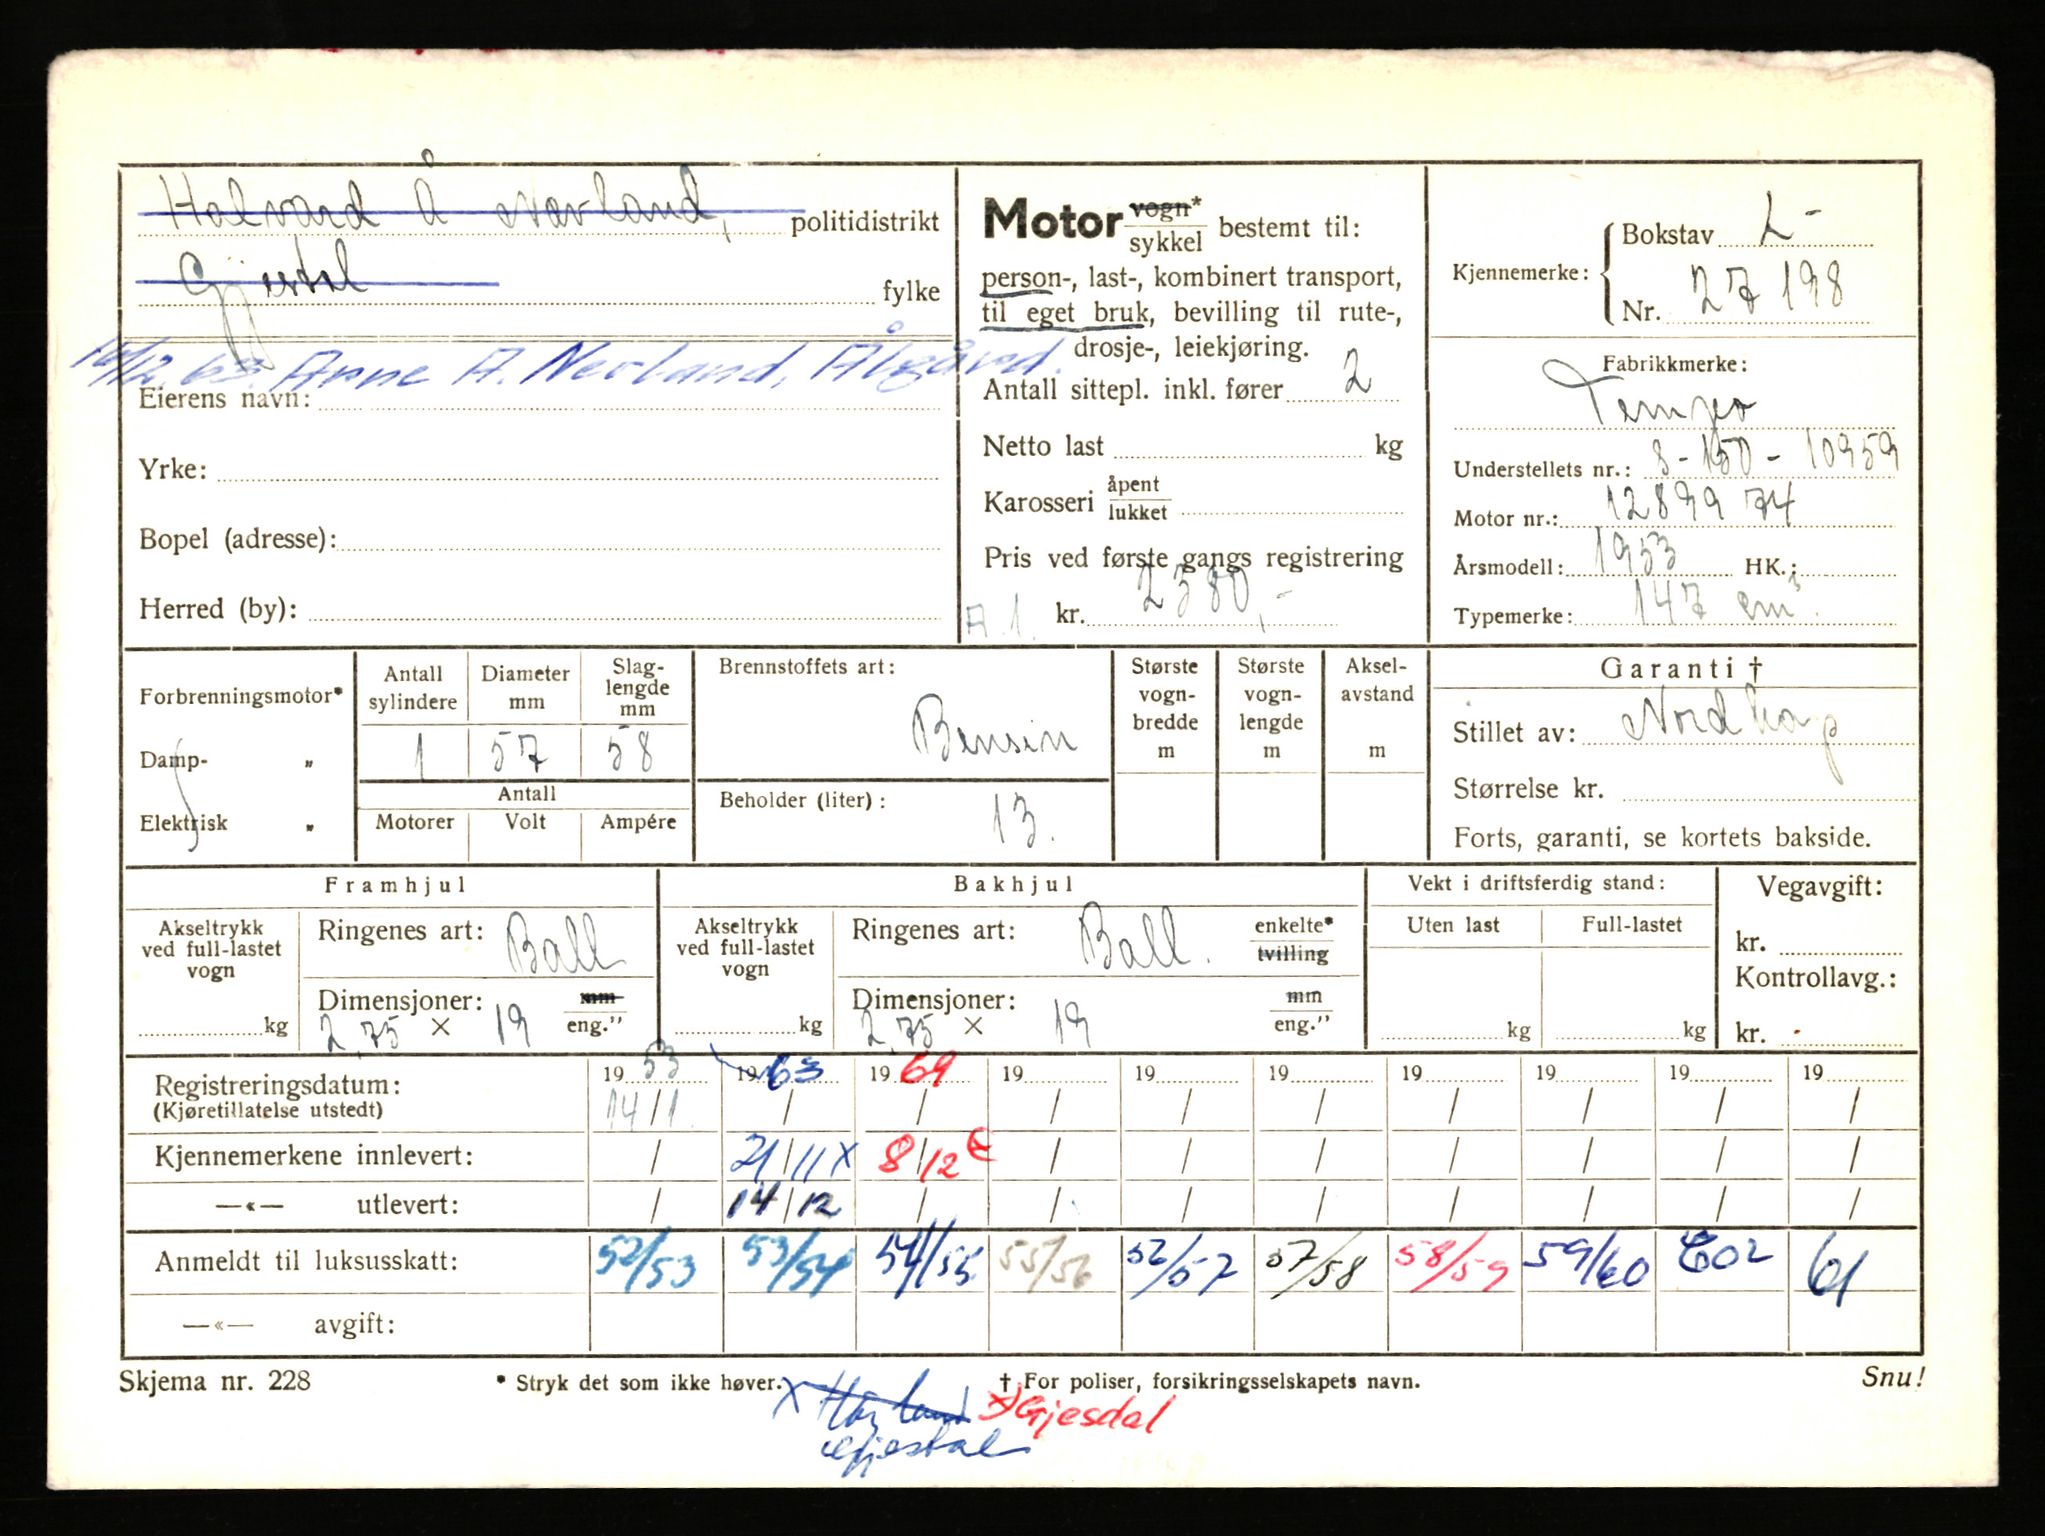 Halvard Å Nærland, politidistrikt
Gjestal fylke
14/12.63. Arne A. Nerland, Ålgård.
Eierens navn:
Yrke:
Bopel (adresse):
Herred (by):
Motor vogn* sykkel bestemt til:
person-, last-, kombinert transport,
til eget bruk, bevilling til rute-,
drosje-, leiekjøring.
Antall sittepl. inkl. fører 2
Netto last kg
Karosseri åpent lukket
Pris ved første gangs registrering
A.1. kr. 2380,-
Kjennemerke: Bokstav L-
Nr. 27198
Fabrikkmerke:
Tempo
Understellets nr.: S-150-10959
Motor nr.: 1289974
Årsmodell: 1953 HK.:
Typemerke: 147 cm³.
Forbrenningsmotor*
Damp- „
Elektrisk „
Antall sylindere Diameter mm Slag-lengde mm
1 57 58
Antall
Motorer Volt Ampére
Brennstoffets art:
Bensin
Beholder (liter): 13.
Største vogn-bredde m
Største vogn-lengde m
Aksel-avstand m
Garanti †
Stillet av: Nordkap
Størrelse kr.
Forts, garanti, se kortets bakside.
Framhjul
Akseltrykk ved full-lastet vogn kg
Ringenes art: Ball
Dimensjoner: mm
2,75 × 19 eng.”
Bakhjul
Akseltrykk ved full-lastet vogn kg
Ringenes art: Ball. enkelte* tvilling
Dimensjoner: mm
2,75 × 19 eng.”
Vekt i driftsferdig stand:
Uten last Full-lastet
kg kg
Vegavgift:
kr.
Kontrollavg.:
kr.
Registreringsdatum: 1953 1963 1969 19 19 19 19 19 19 19
(Kjøretillatelse utstedt) 14/1 / / / / / / / / /
Kjennemerkene innlevert: / 21/11 X 8/12 / / / / / / /
—«— utlevert: / 14/12 / / / / / / / /
Anmeldt til luksusskatt: 52/53 53/54 54/55 55/56 56/57 57/58 58/59 59/60 602 61
—«— avgift:
Skjema nr. 228 * Stryk det som ikke høver. † For poliser, forsikringsselskapets navn. Snu!
X x) Gjesdal
Gjestal